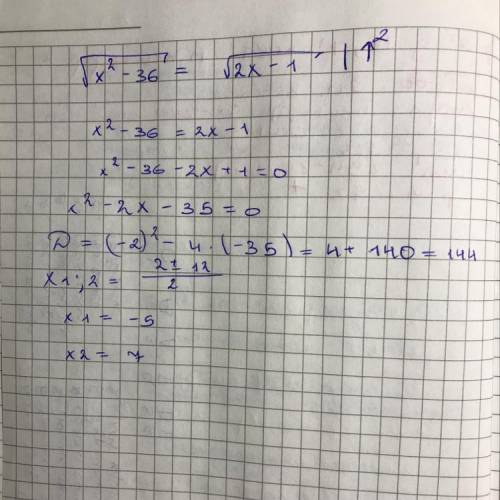 √(x² - 36) = √(2x - 1) | ↑²
x² - 36 = 2x - 1
x² - 36 - 2x + 1 = 0
x² - 2x - 35 = 0
D = (-2)² - 4 · (-35) = 4 + 140 = 144
x1;2 = (2 ± 12)/2
x1 = -5
x2 = 7